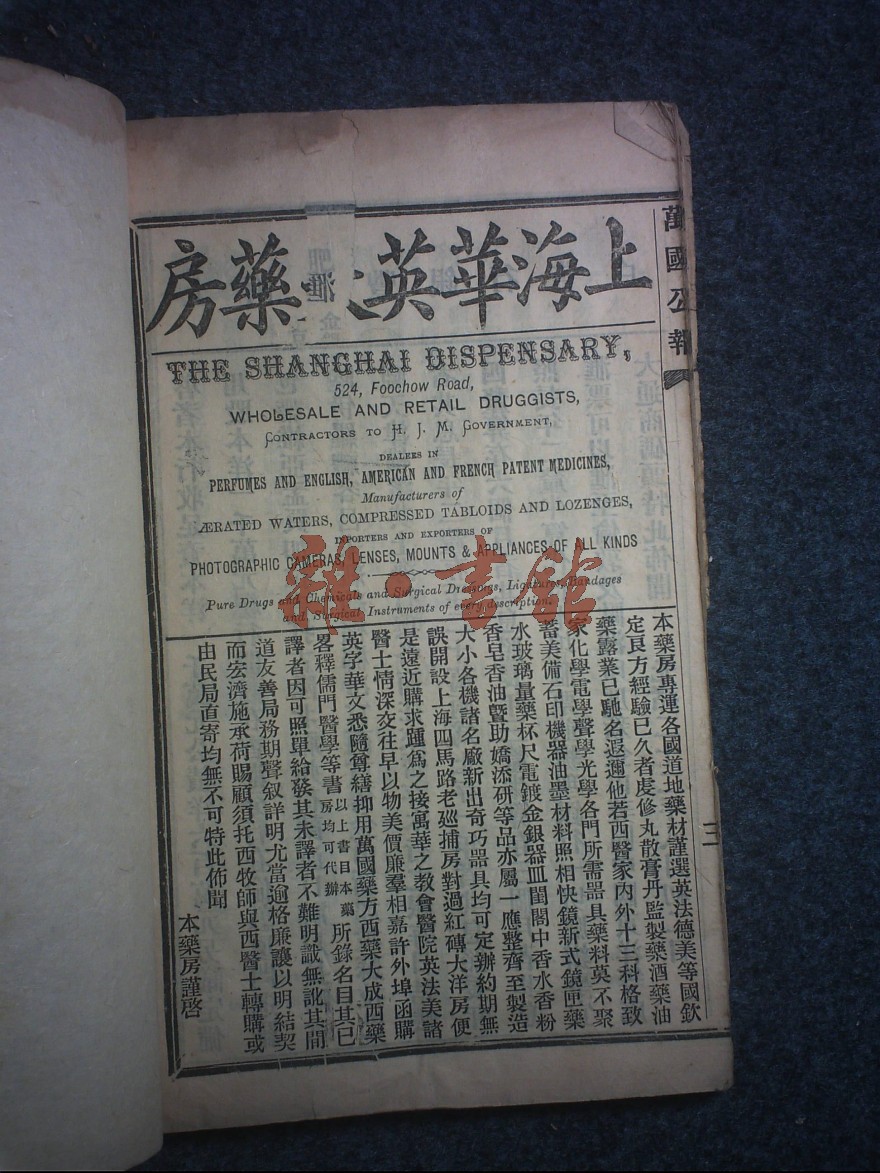 萬國公報
三
上海華英藥房
THE SHANGHAI DISPENSARY,
524, Foochow Road,
WHOLESALE AND RETAIL DRUGGISTS,
CONTRACTORS TO H. I. M. GOVERNMENT,
DEALERS IN
PERFUMES AND ENGLISH, AMERICAN AND FRENCH PATENT MEDICINES,
Manufacturers of
ÆRATED WATERS, COMPRESSED TABLOIDS AND LOZENGES,
IMPORTERS AND EXPORTERS OF
PHOTOGRAPHIC CAMERAS, LENSES, MOUNTS & APPLIANCES OF ALL KINDS
Pure Drugs and Chemicals and Surgical Dressings, Ligatures, Bandages
and Surgical Instruments of every description.
本藥房專運各國道地藥材謹選英法德美等國欽
定良方經驗已久者虔修丸散膏丹監製藥酒藥油
藥露業已馳名遐邇他若西醫家內外十三科格致
家化學電學聲學光學各門所需器具藥料莫不聚
蓄美備石印機器油墨材料照相快鏡新式鏡匣藥
水玻璃量藥杯尺電鍍金銀器皿閨閣中香水香粉
香皂香油暨助嬌添研等品亦屬一應整齊至製造
大小各機諸名廠新出奇巧器具均可定辦約期無
誤開設上海四馬路老巡捕房對過紅磚大洋房便
是遠近購求踵爲之接寓華之教會醫院英法美諸
醫士情深交往早以物美價廉羣相嘉許外埠函購
英字華文悉隨尊繕抑用萬國藥方西藥大成西藥
畧釋儒門醫學等書以上書目本藥房均可代辦所錄名目其已
譯者因可照單給發其未譯者不難明識無訛其間
道友善局務期聲叙詳明尤當逾格廉讓以明結契
而宏濟施承荷賜顧須托西牧師與西醫士轉購或
由民局直寄均無不可特此佈聞
本藥房謹啓
雜·書館